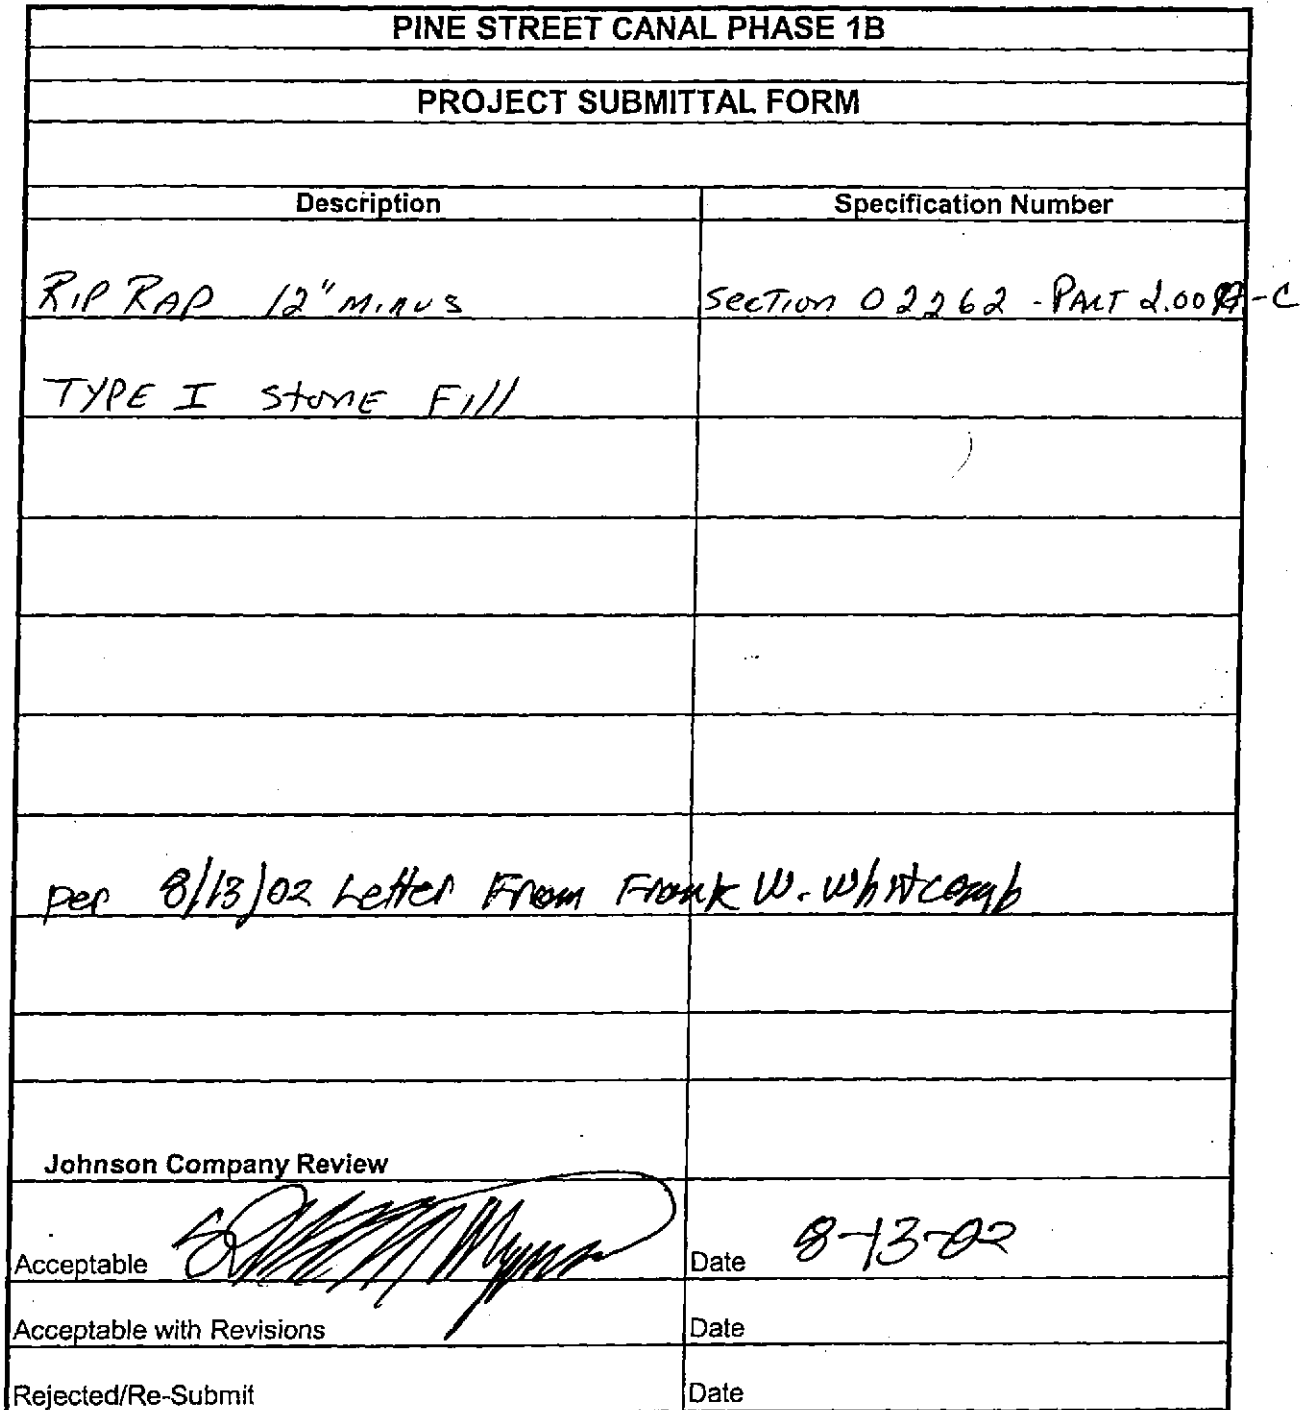 PINE STREET CANAL PHASE 1B
PROJECT SUBMITTAL FORM
Description Specification Number
RIP RAP 12" Minus Section 02262 - PART 2.00 -C
TYPE I Stone Fill
per 8/13/02 Letter From Frank W. Whitcomb
Johnson Company Review
Acceptable Date 8-13-02
Acceptable with Revisions Date
Rejected/Re-Submit Date